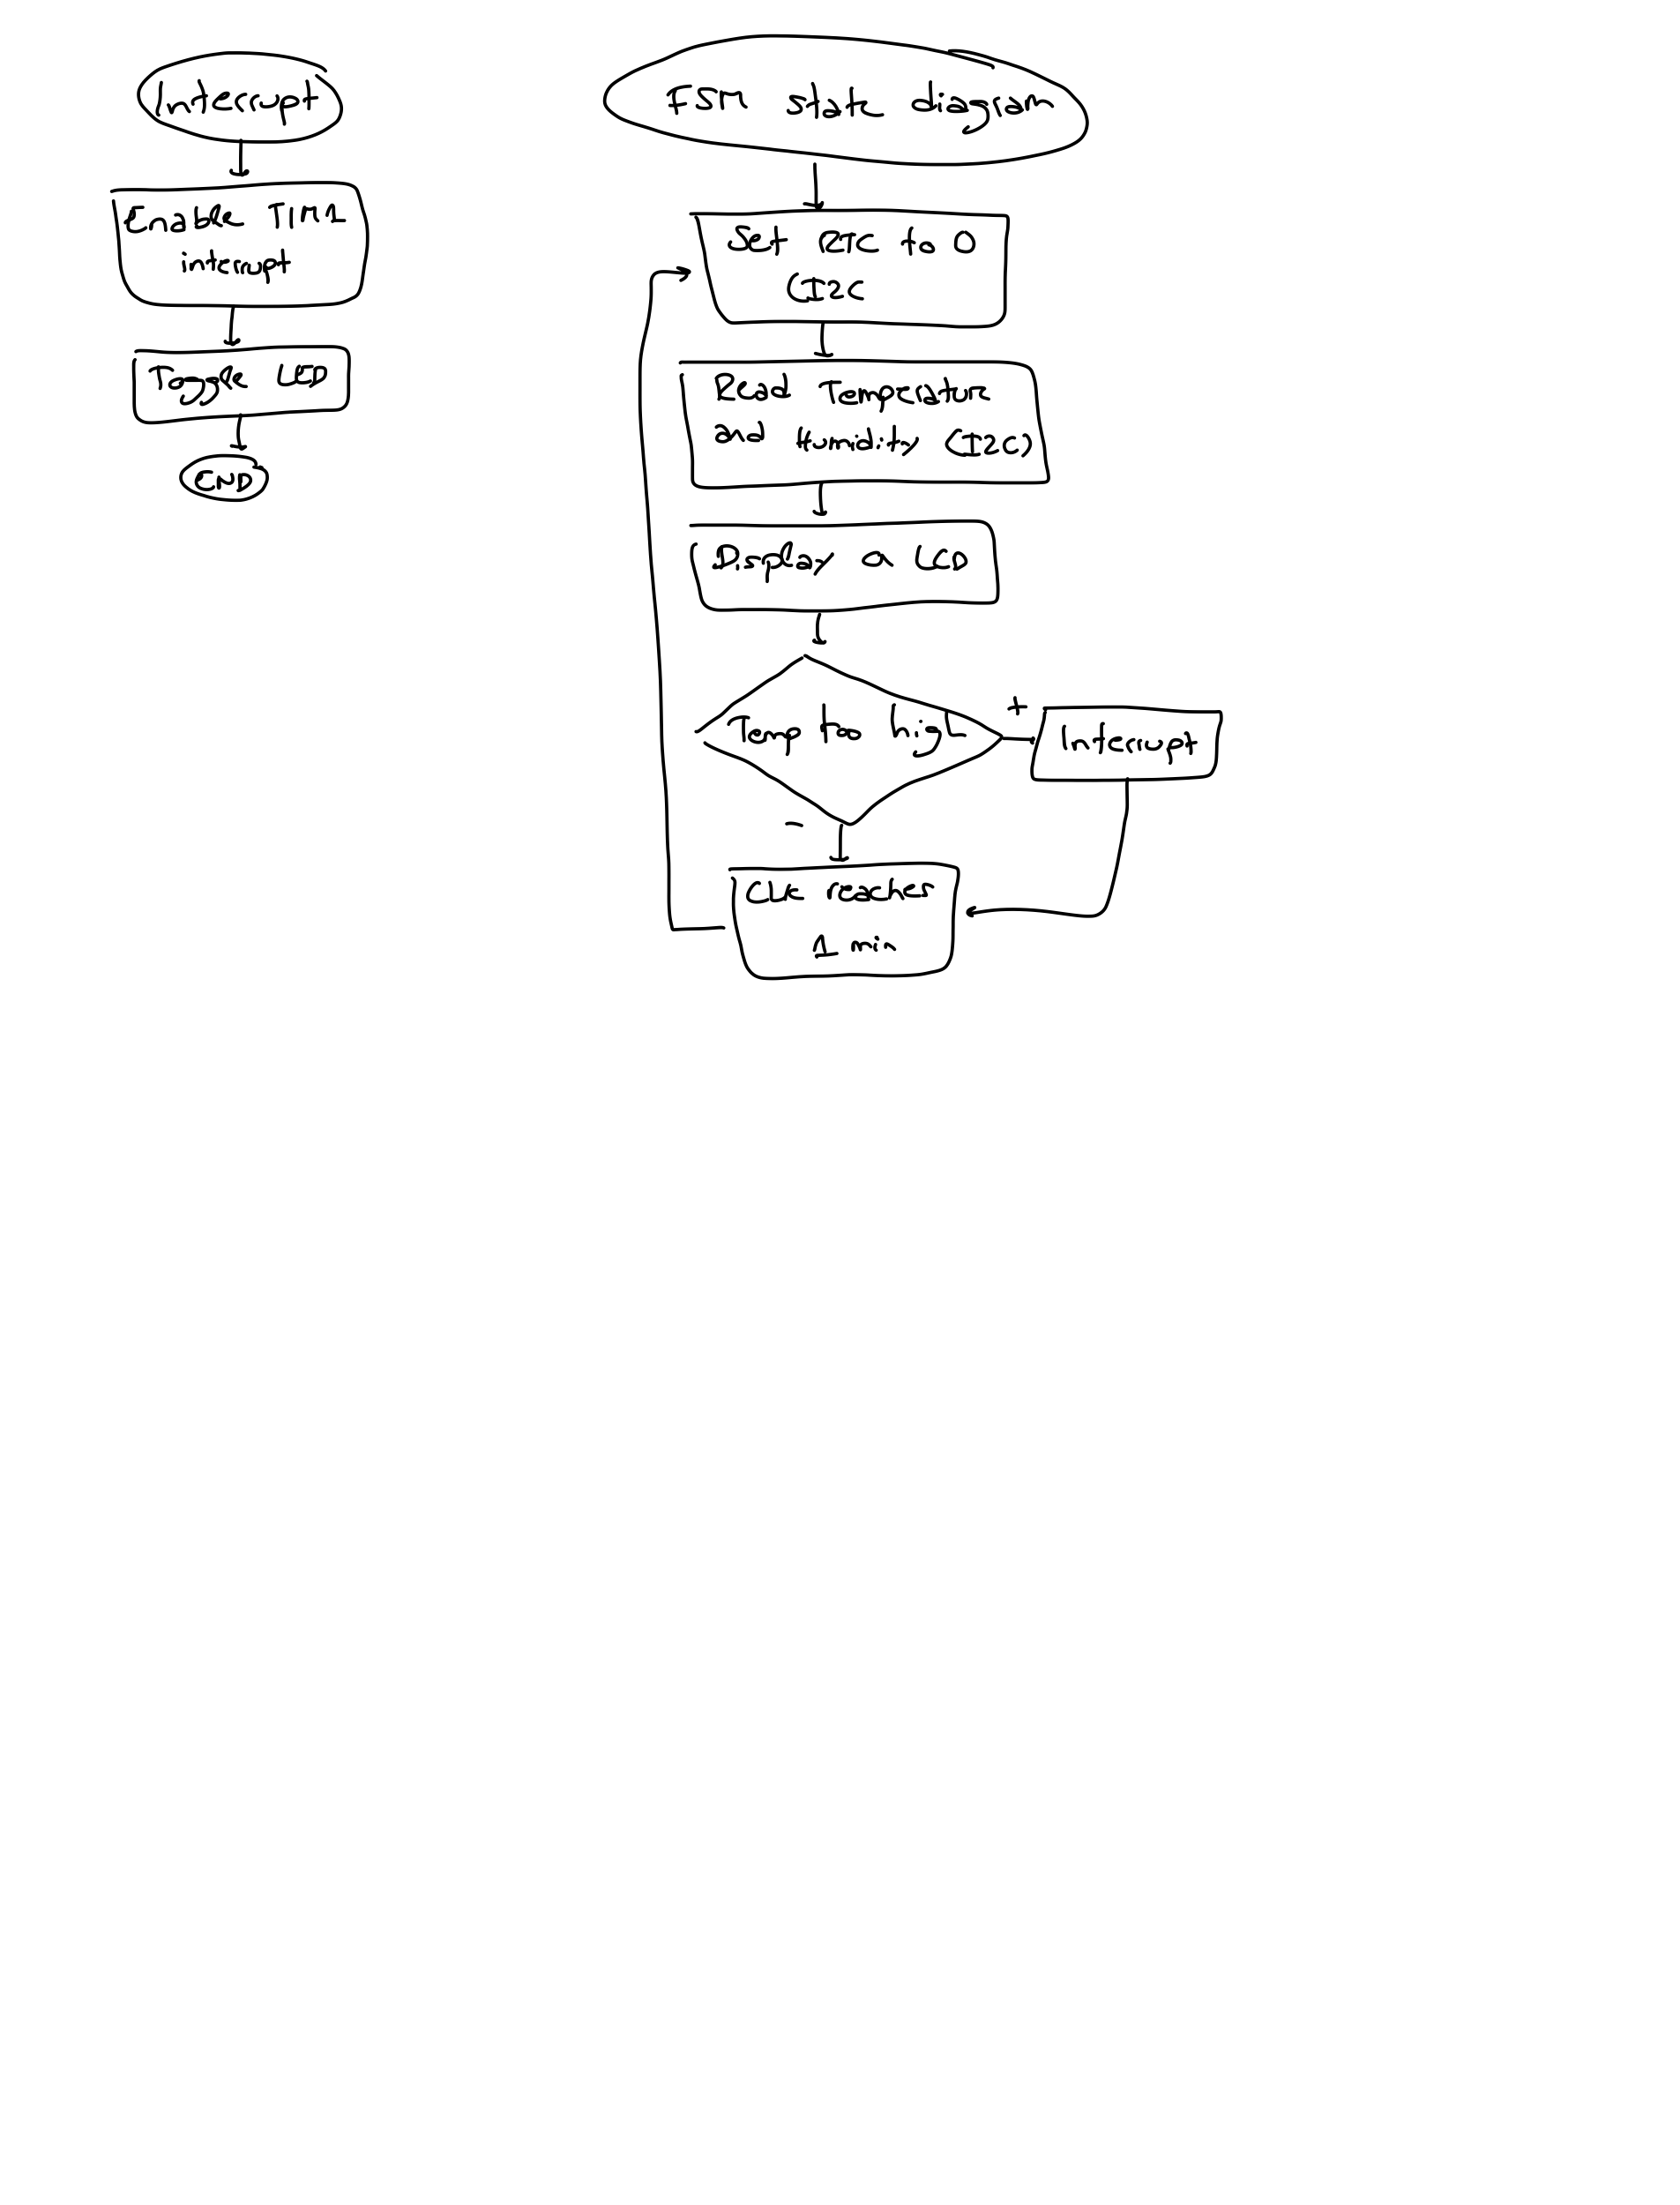 Interrupt
Enable TIM1
interrupt
Toggle LED
END
FSM state diagram
Set RTC to 0
(I2C
Read Temperature
and Humidity (I2C)
Display on LCD
Temp to high
+
Interrupt
-
CLK reaches
1 min